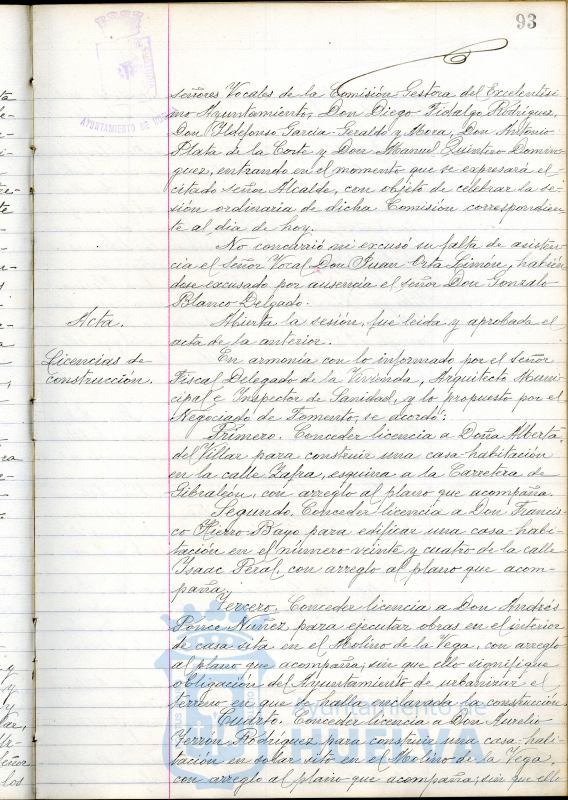 93
AYUNTAMIENTO DE
señores Vocales de la Comisión Gestora del Excelentísi
mo Ayuntamiento, Don Diego Fidalgo Rodríguez,
Don Ildefonso García-Geraldo y Mora, Don Antonio
Plata de la Corte y Don Manuel Quintero Domín-
guez, entrando en el momento que se expresará el
citado señor Alcalde, con objeto de celebrar la se-
sión ordinaria de dicha Comisión correspondien
te al dia de hoy.
No concurrió ni excusó su falta de asisten-
cia el señor Vocal Don Juan Orta Gimón, habién
dose excusado por ausencia el señor Don Gonzalo
Blanco Delgado.
Acta.
Abierta la sesión, fué leida y aprobada el
acta de la anterior.
Licencias de
construcción.
En armonía con lo informado por el señor
Fiscal Delegado de la Vivienda, Arquitecto Muni-
cipal e Inspector de Sanidad, y lo propuesto por el
Negociado de Fomento, se acordó:
Primero. Conceder licencia a Doña Alberta
del Villar para construir una casa habitación
en la calle Zafra, esquina a la Carretera de
Gibraleón, con arreglo al plano que acompaña.
Segundo. Conceder licencia a Don Francis-
co Hierro Bayo para edificar una casa habi-
tación en el número veinte y cuatro de la calle
Isaac Peral, con arreglo al plano que acom-
paña.
Tercero. Conceder licencia a Don Andrés
Ponce Nuñez para ejecutar obras en el interior
de casa sita en el Molino de la Vega, con arreglo
al plano que acompaña; sin que ello signifique
obligación del Ayuntamiento de urbanizar el
terreno en que se halla enclavada la construcción.
Cuarto. Conceder licencia a Don Aurelio
Ferron Rodríguez para construir una casa-habi-
tación en solar sito en el Molino de la Vega,
con arreglo al plano que acompaña; sin que ello
Ayuntamiento de
HUELVA